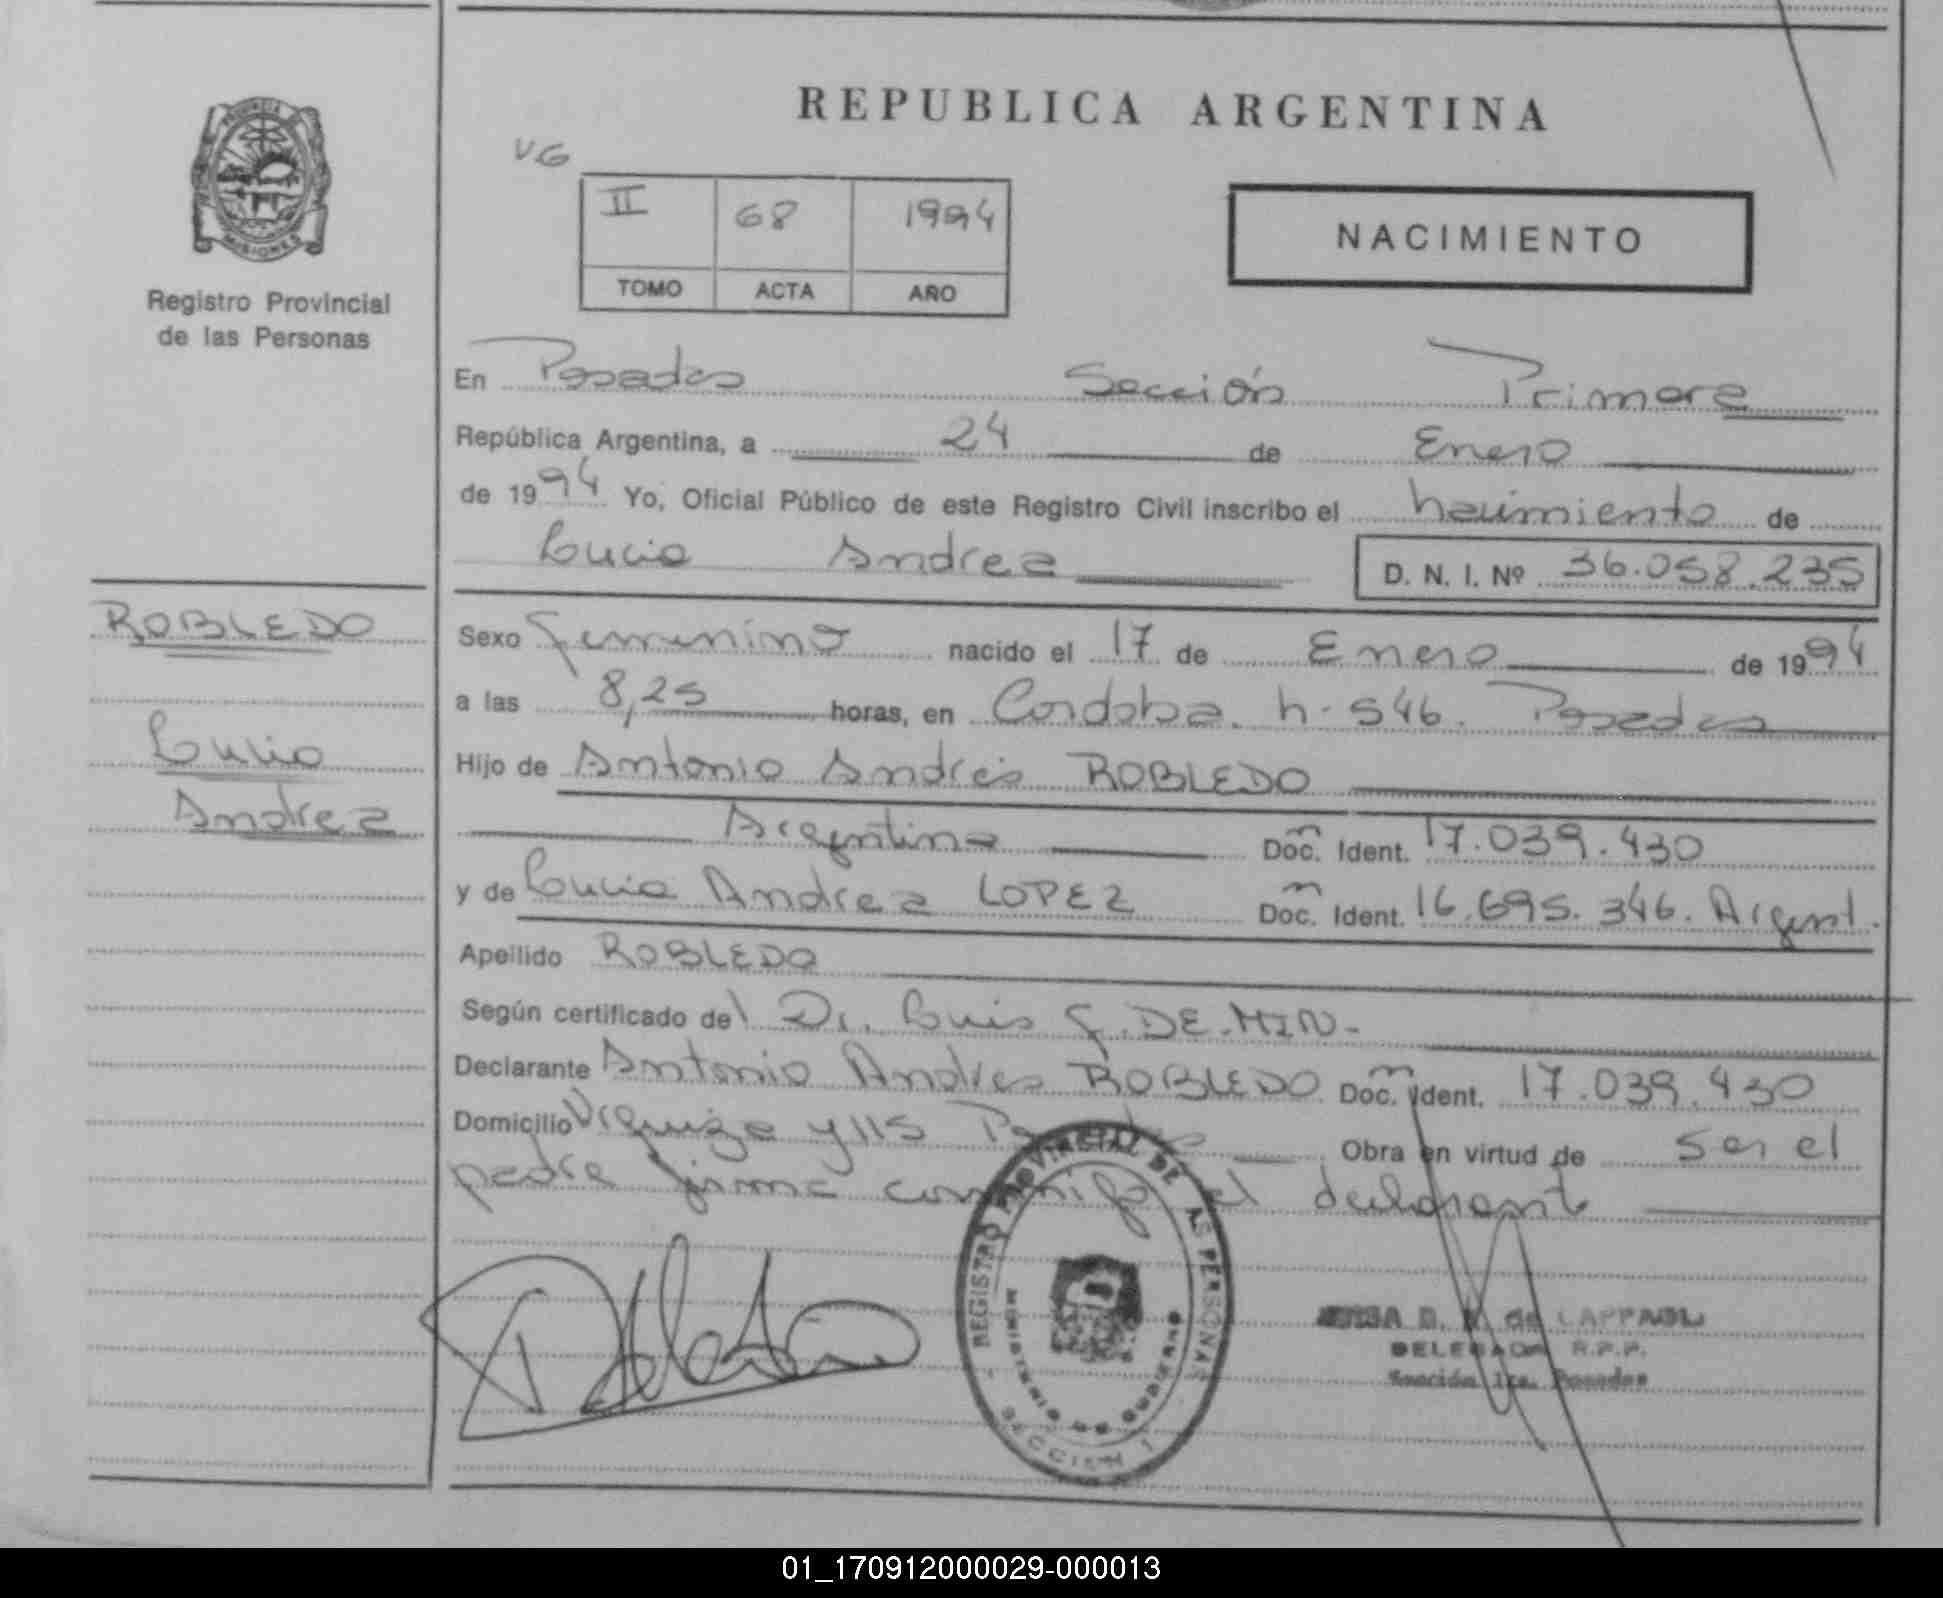 REPUBLICA ARGENTINA
PROVINCIA DE MISIONES
Registro Provincial
de las Personas
VG
II 68 1994
TOMO ACTA AÑO
NACIMIENTO
En Posadas Sección Primera
República Argentina, a 24 de Enero
de 1994 Yo, Oficial Público de este Registro Civil inscribo el nacimiento de
Lucia Andrea D. N. I. Nº 36.058.235
ROBLEDO
Lucia
Andrea
Sexo femenino nacido el 17 de Enero de 1994
a las 8,25 horas, en Cordoba. n. 546. Posadas
Hijo de Antonio Andrés ROBLEDO
Argentina Doc. Ident. 17.039.430
y de Lucia Andrea LOPEZ Doc. Ident. 16.695.346. Argent.
Apellido ROBLEDO
Según certificado del Dr. Luis F. DE.MIN.-
Declarante Antonio Andres ROBLEDO Doc. Ident. 17.039.430
Domicilio Urquiza y 115 Posadas Obra en virtud de ser el
padre firma conmigo el declarante
REGISTRO PROVINCIAL DE LAS PERSONAS
MINISTERIO DE GOBIERNO
SECCION 1
DELEGADA R.P.P.
Sección 1ra. Posadas
01_170912000029-000013